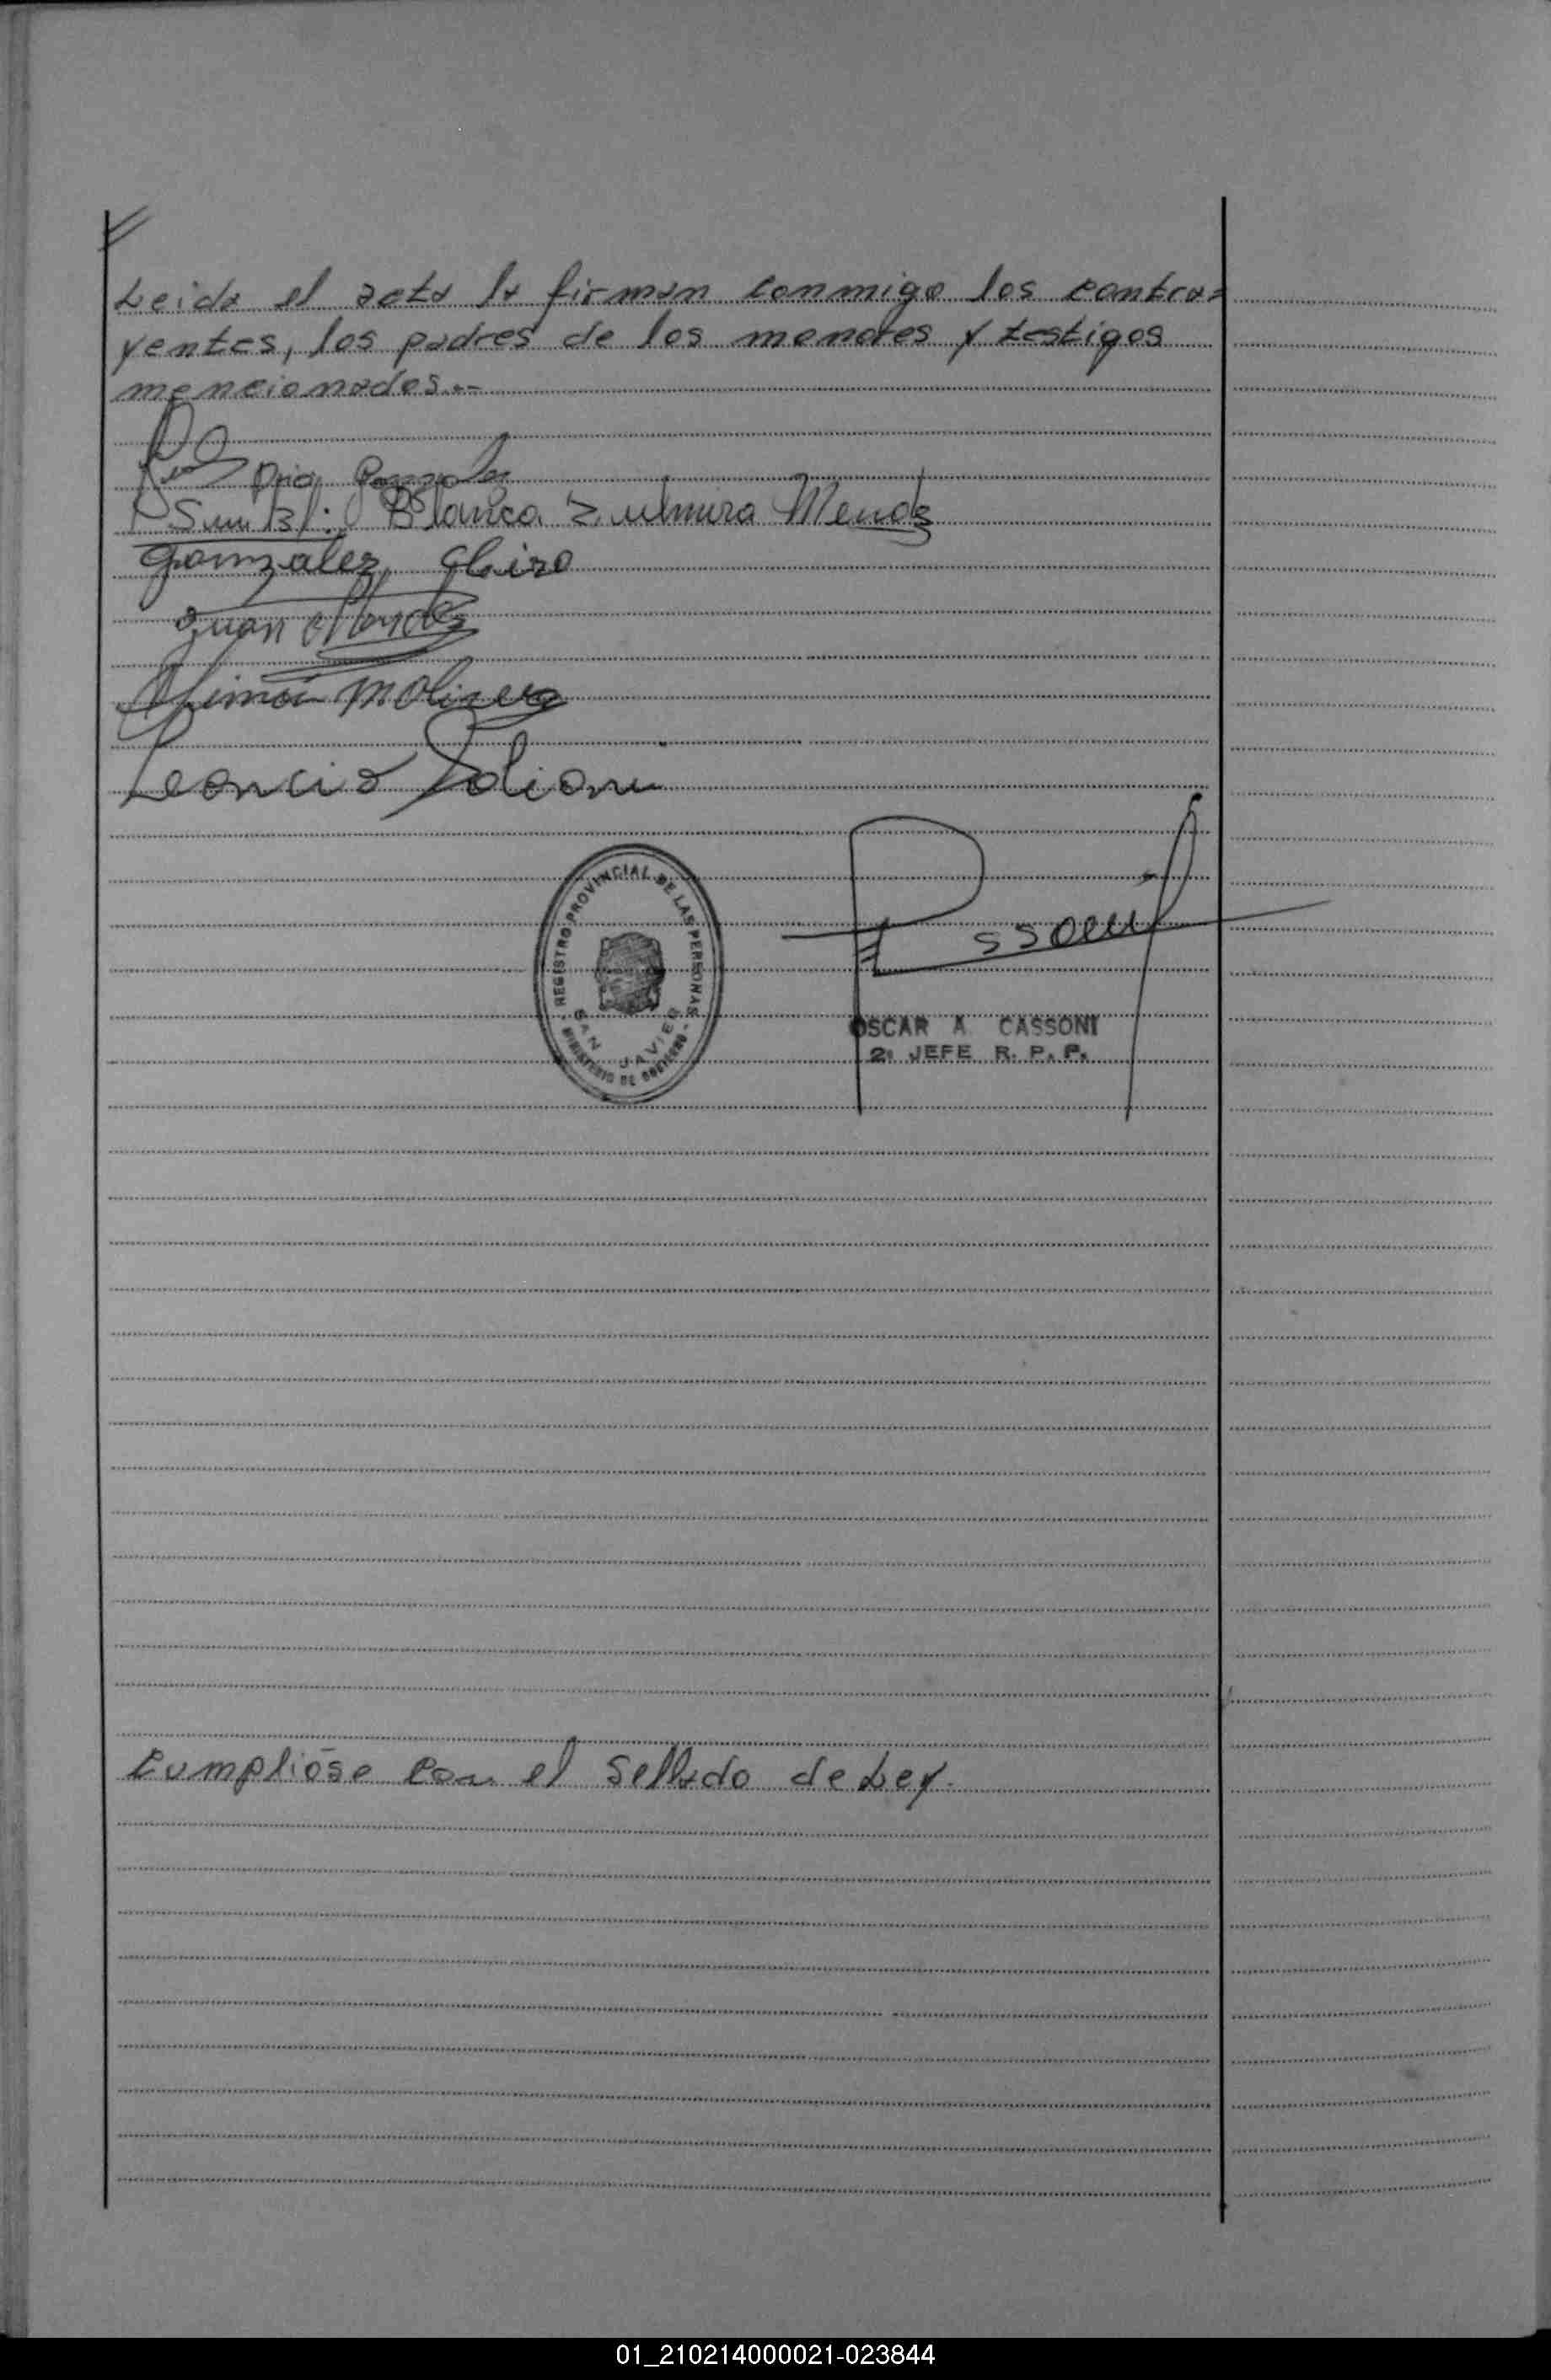 Leida el acta la firman conmigo los contra=
yentes, los padres de los menores y testigos
mencionados.--
Gonzalez
Blanca Zulmira Mendz
Gonzalez,
Juan Mendez
Molinero
Leoncio
REGISTRO PROVINCIAL DE LAS PERSONAS
SAN JAVIER
MINISTERIO DE GOBIERNO
OSCAR A CASSONI
2º JEFE R. P. P.
Cumplióse con el Sellado de Ley.
01_210214000021-023844